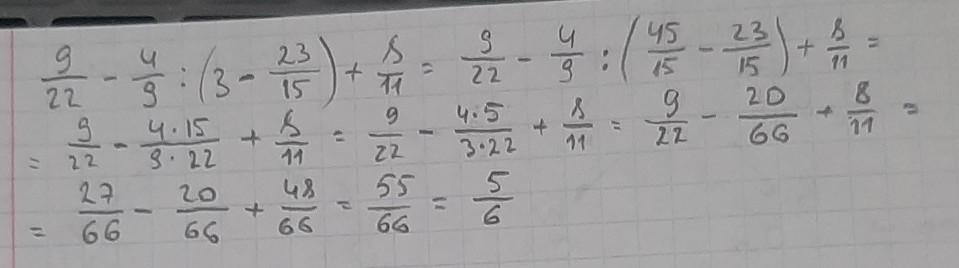 9/22 - 4/9 : (3 - 23/15) + 8/11 = 9/22 - 4/9 : (45/15 - 23/15) + 8/11 =
= 9/22 - 4·15/9·22 + 8/11 = 9/22 - 4·5/3·22 + 8/11 = 9/22 - 20/66 + 8/11 =
= 27/66 - 20/66 + 48/66 = 55/66 = 5/6